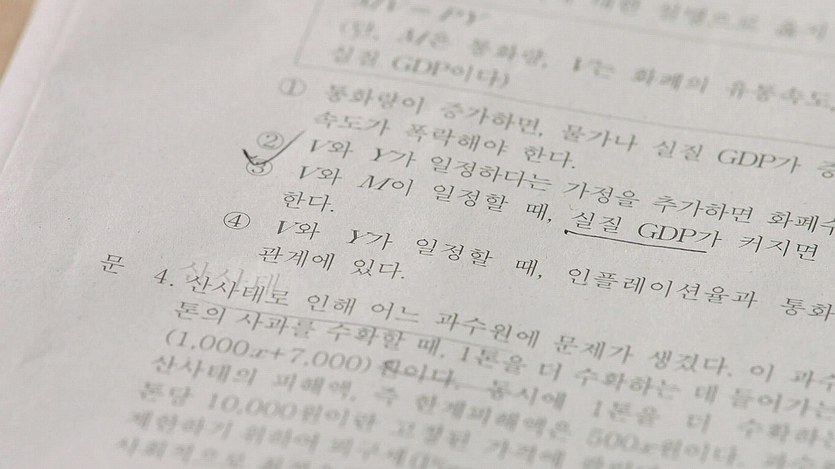 MV = PY
(단, M은 통화량, V는 화폐의 유통속도,
실질 GDP이다)
① 통화량이 증가하면, 물가나 실질 GDP가 증
속도가 폭락해야 한다.
② V와 Y가 일정하다는 가정을 추가하면 화폐수
③ V와 M이 일정할 때, 실질 GDP가 커지면
한다.
④ V와 Y가 일정할 때, 인플레이션율과 통화
관계에 있다.
산사태
문 4. 산사태로 인해 어느 과수원에 문제가 생겼다. 이 과수
톤의 사과를 수확할 때, 1톤을 더 수확하는 데 들어가는
(1,000x+7,000)원이다. 동시에 1톤을 더 수확하
산사태의 피해액, 즉 한계피해액은 500x원이다. 과수
톤당 10,000원이란 고정된 가격에
제한하기 위하여 피구세
사회적으로